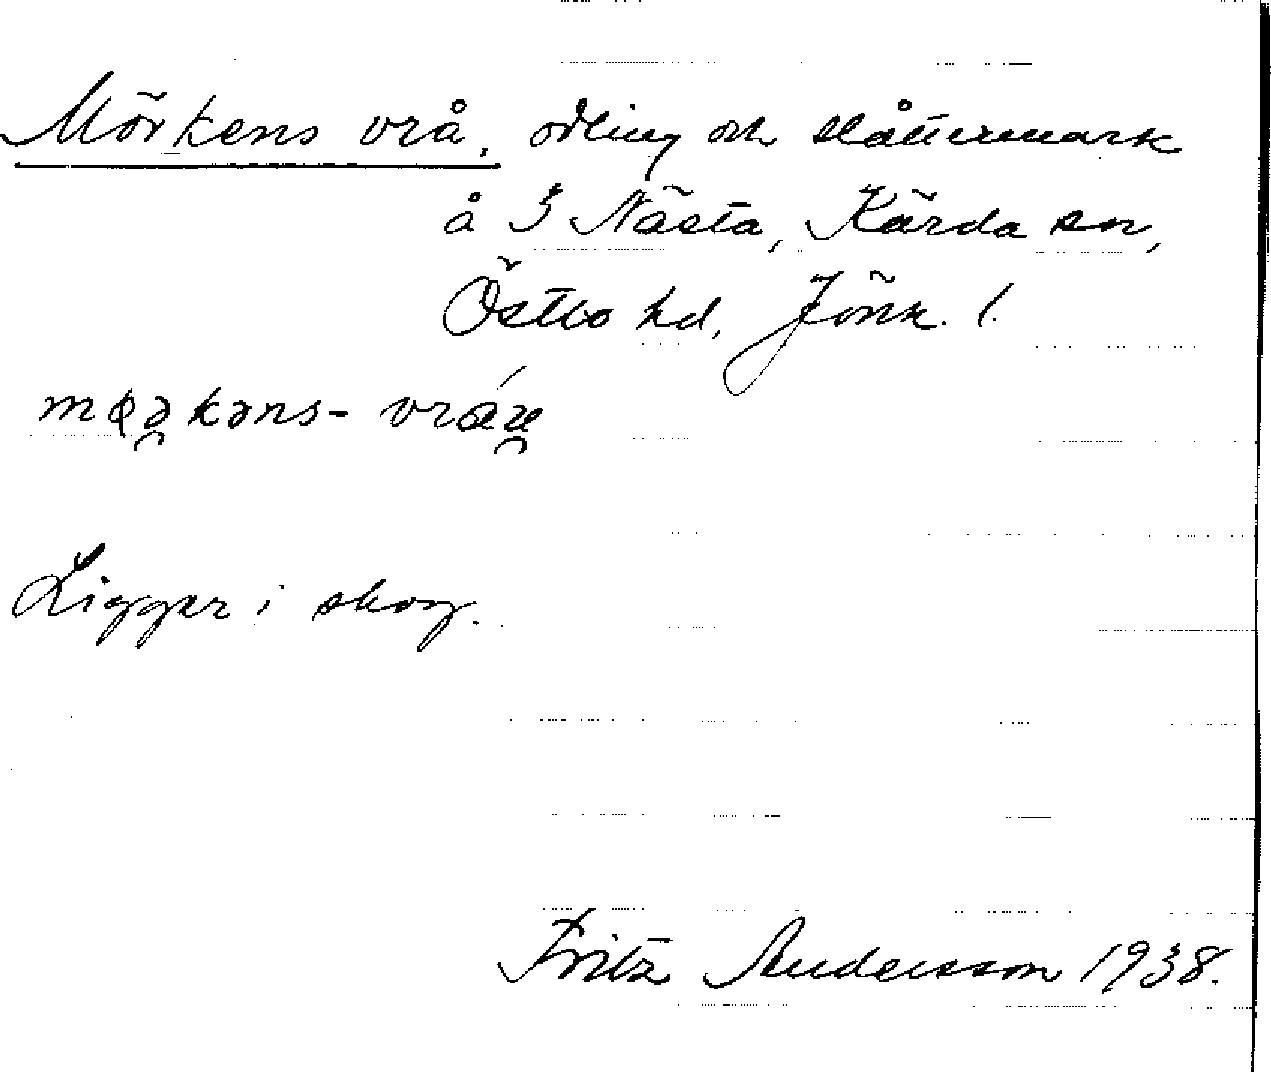 Mörkens vrå, odling och slåttermark
å 3 Nästa, Kärda sn,
Östbo hd, Jönk. l.
Ligger i skog.
Fritz Andersson 1938.